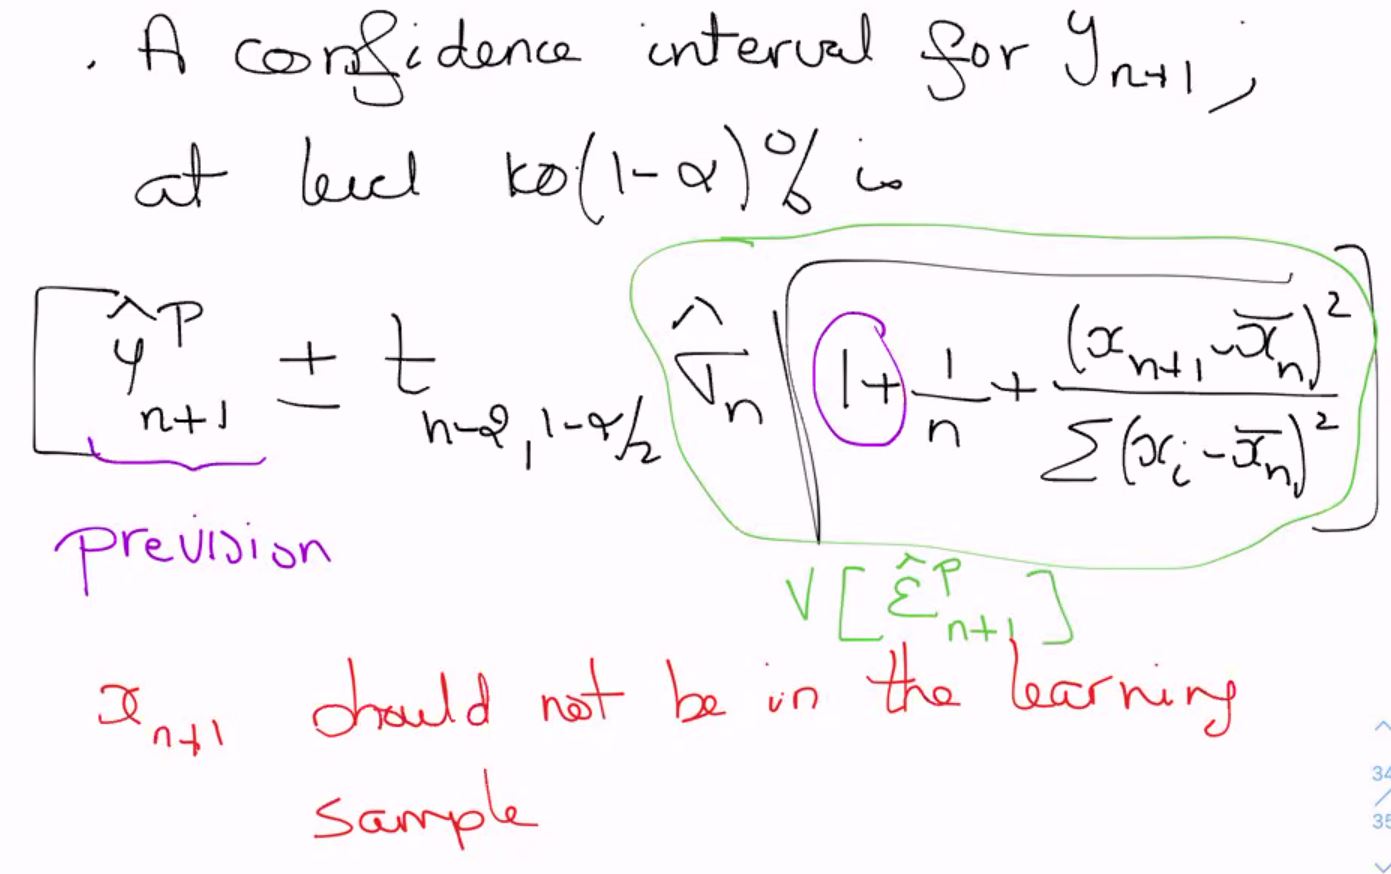 . A confidence interval for y_{n+1},
at level 100(1-α)% is
[ŷ^P_{n+1} ± t_{n-2, 1-α/2} σ̂_n √(1 + 1/n + (x_{n+1} - x̄_n)² / Σ(x_i - x̄_n)²)]
prevision
V[ε̂^P_{n+1}]
x_{n+1} should not be in the learning
sample
34
/
35